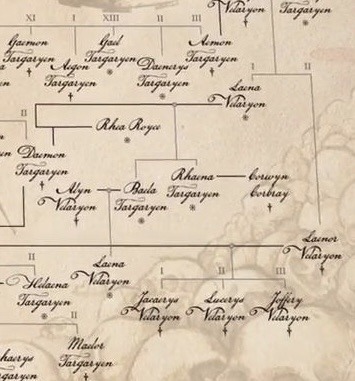 Velaryon
Targaryen
XI I XIII II III
Gaemon
Targaryen
Aegon
Targaryen
Gael
Targaryen
Daenerys
Targaryen
Aemon
Targaryen
I II
Laena
Velaryon
II
Rhea Royce
Daemon
Targaryen
Alyn
Velaryon
Baela
Targaryen
Rhaena
Targaryen
Corwyn
Corbray
Laenor
Velaryon
II
Helaena
Targaryen
Laena
Velaryon
I II III
Jacaerys
Velaryon
Lucerys
Velaryon
Joffery
Velaryon
II
Maelor
Targaryen